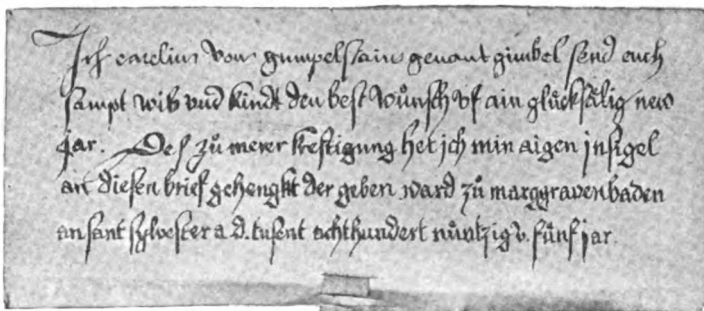 Ich carelius von gumpelstain genant gümbel send euch
sampt wib vnd kindt den best wůnsch vf ain glůcksålig new
jar. Deß zů merer kreftigung het ich min aigen jnsigel
an diesen brief gehengkt der geben ward zů marggravenbaden
an sant sylvester a.d. tusent achthundert nůntzig v. fůnf jar.